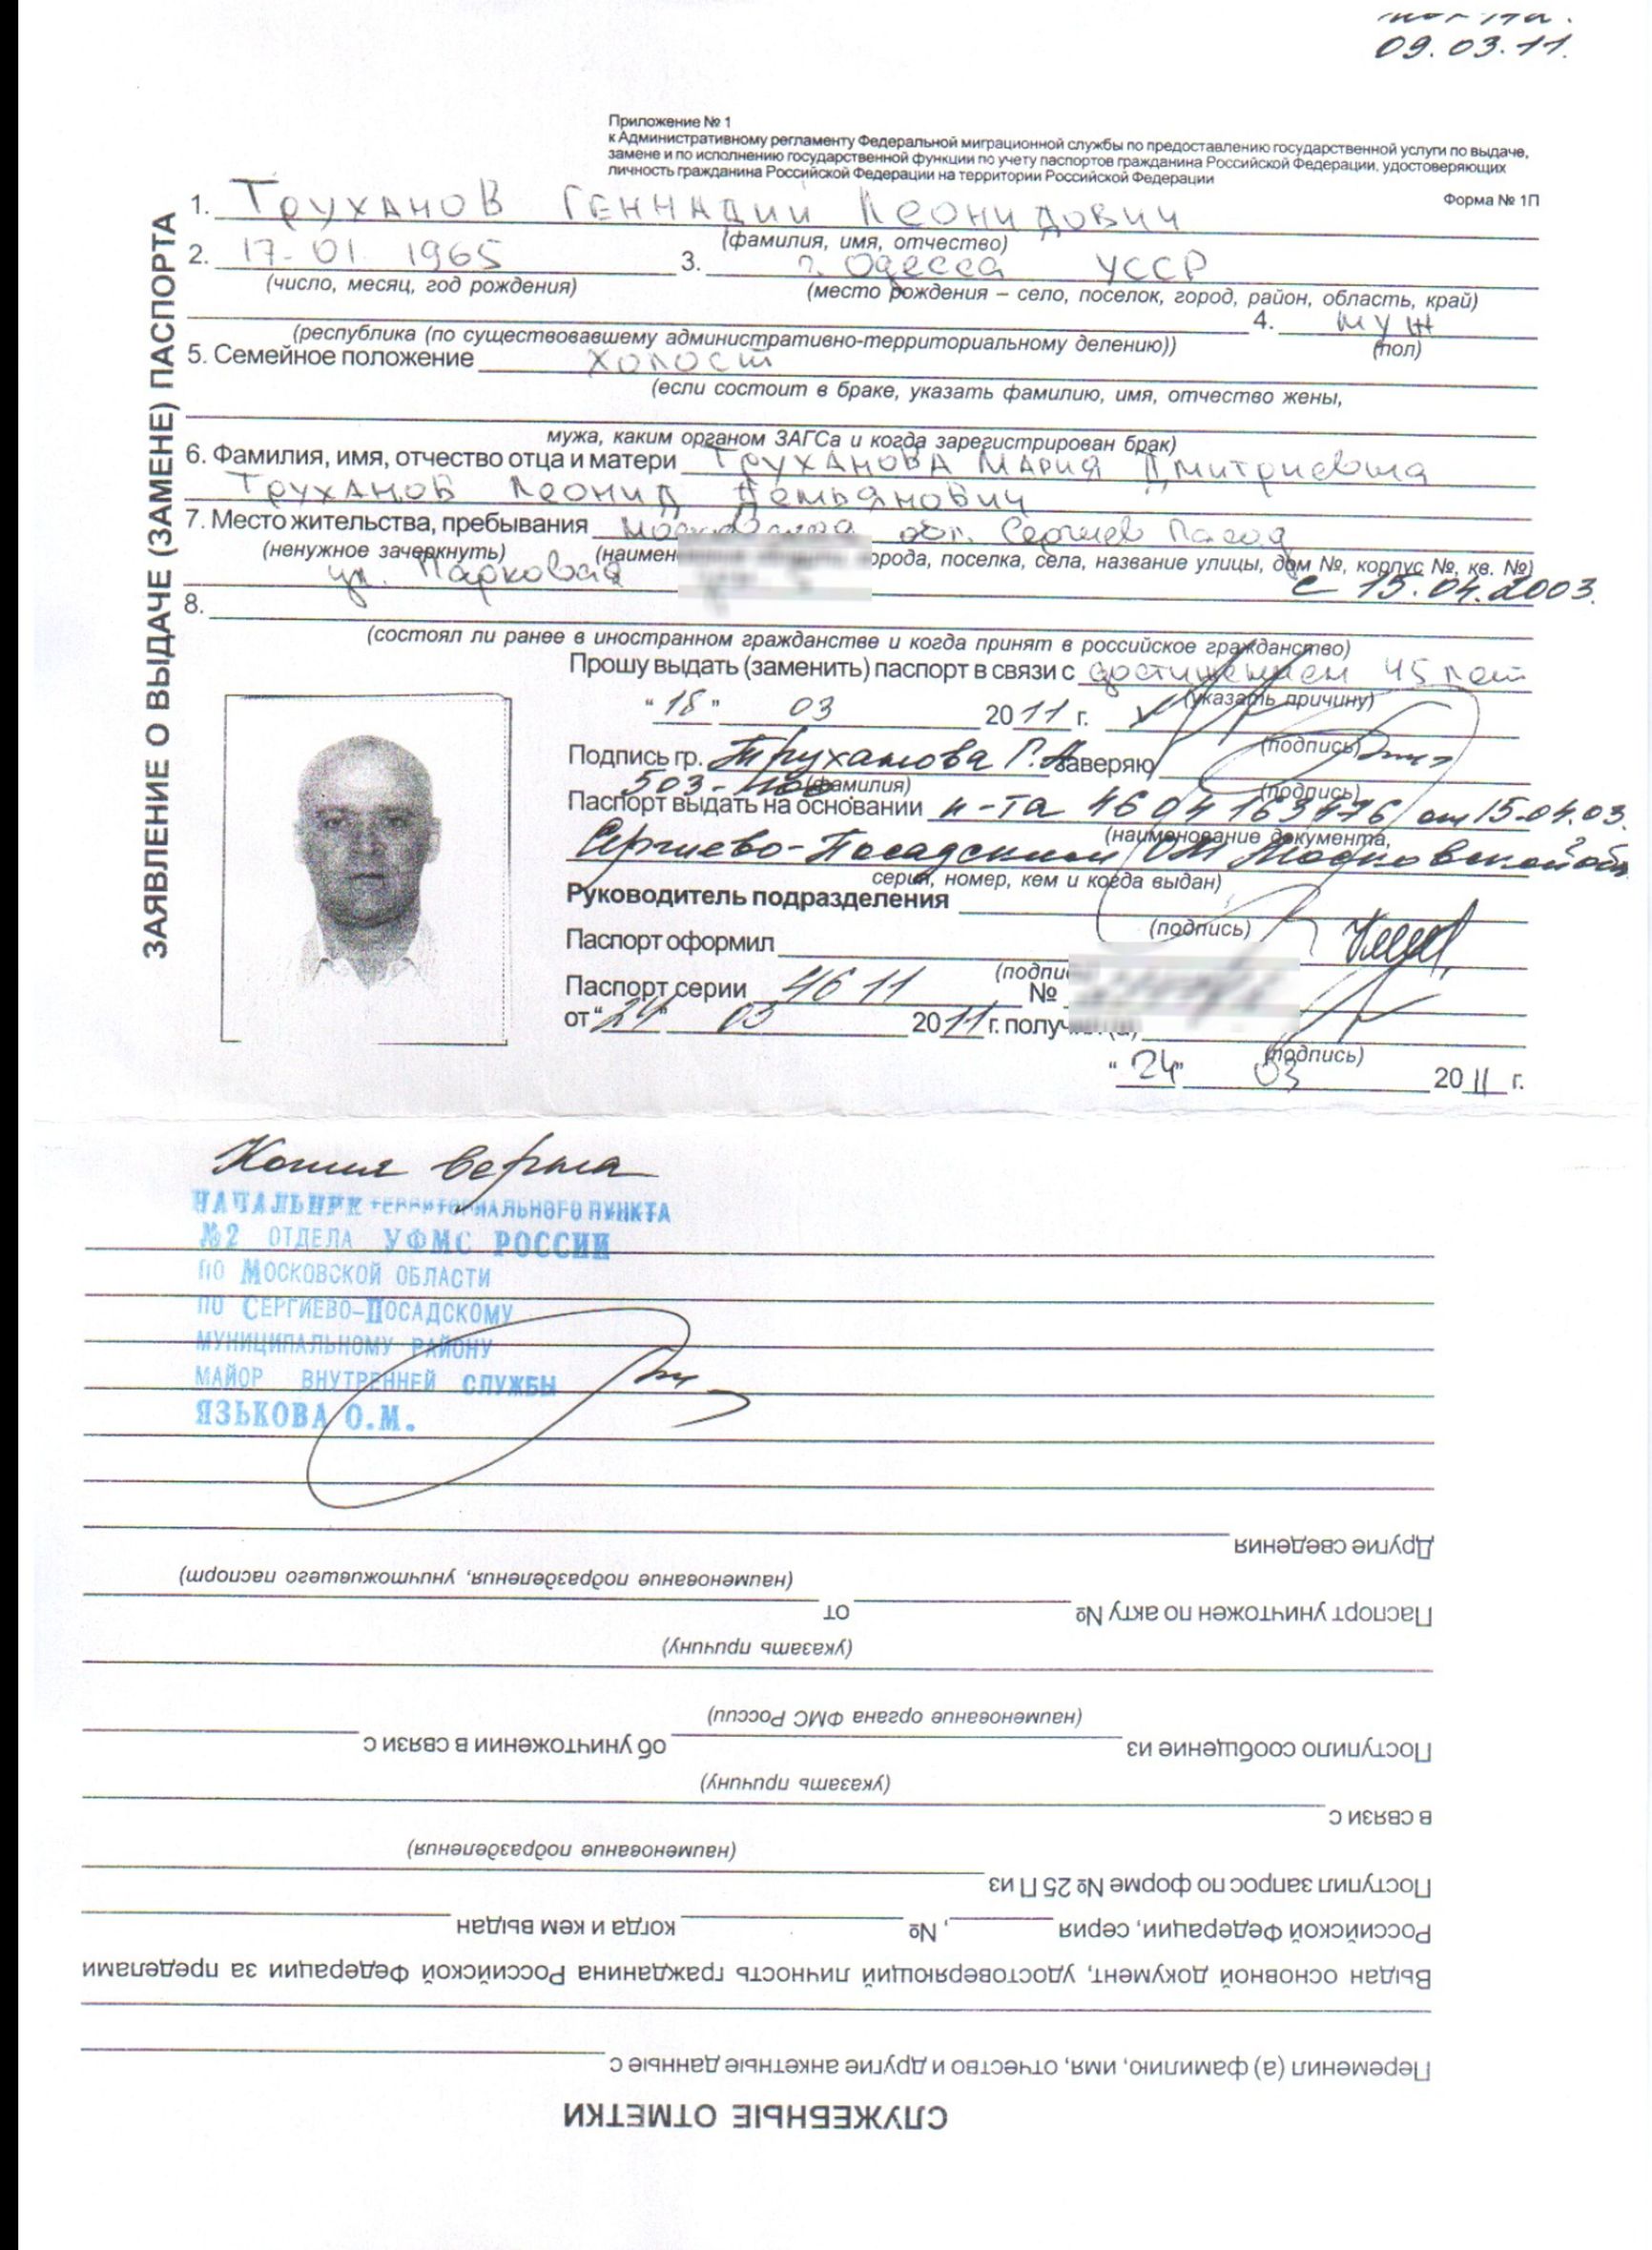 09.03.11.
Приложение № 1
к Административному регламенту Федеральной миграционной службы по предоставлению государственной услуги по выдаче,
замене и по исполнению государственной функции по учету паспортов гражданина Российской Федерации, удостоверяющих
личность гражданина Российской Федерации на территории Российской Федерации
Форма № 1П
ЗАЯВЛЕНИЕ О ВЫДАЧЕ (ЗАМЕНЕ) ПАСПОРТА
1. Труханов Геннадий Леонидович
(фамилия, имя, отчество)
2. 17-01 1965 3. г. Одесса УССР
(число, месяц, год рождения) (место рождения – село, поселок, город, район, область, край)
4. муж
(республика (по существовавшему административно-территориальному делению)) (пол)
5. Семейное положение холост
(если состоит в браке, указать фамилию, имя, отчество жены,
мужа, каким органом ЗАГСа и когда зарегистрирован брак)
6. Фамилия, имя, отчество отца и матери Труханова Мария Дмитриевна
Труханов Леонид Демьянович
7. Место жительства, пребывания Московская обл. Сергиев Пасад
(ненужное зачеркнуть) города, поселка, села, название улицы, дом №, корпус №, кв. №)
ул. Парковая с 15.04.2003.
8.
(состоял ли ранее в иностранном гражданстве и когда принят в российское гражданство)
Прошу выдать (заменить) паспорт в связи с достижением 45 лет
(указать причину)
"18" 03 2011 г.
(подпись)
Подпись гр. Труханова Г.Л. заверяю
(фамилия) (подпись)
503-
Паспорт выдать на основании п-та 46 04 163476 от 15.04.03.
(наименование документа,
Сергиево-Посадским ОМ Московской обл
серия, номер, кем и когда выдан)
Руководитель подразделения
(подпись)
Паспорт оформил
Паспорт серии 46 11 №
от "24" 03 2011 г.
(подпись)
"24" 03 2011 г.
Копия верна
НАЧАЛЬНИК ТЕРРИТОРИАЛЬНОГО ПУНКТА
№2 ОТДЕЛА УФМС РОССИИ
ПО МОСКОВСКОЙ ОБЛАСТИ
ПО СЕРГИЕВО-ПОСАДСКОМУ
МУНИЦИПАЛЬНОМУ РАЙОНУ
МАЙОР ВНУТРЕННЕЙ СЛУЖБЫ
ЯЗЬКОВА О.М.
СЛУЖЕБНЫЕ ОТМЕТКИ
Переменил (а) фамилию, имя, отчество и другие анкетные данные с
Выдан основной документ, удостоверяющий личность гражданина Российской Федерации за пределами
Российской Федерации, серия , № когда и кем выдан
Поступил запрос по форме № 25 П из
(наименование подразделения)
в связи с
(указать причину)
Поступило сообщение из об уничтожении в связи с
(наименование органа ФМС России)
(указать причину)
Паспорт уничтожен по акту № от
(наименование подразделения, уничтожившего паспорт)
Другие сведения